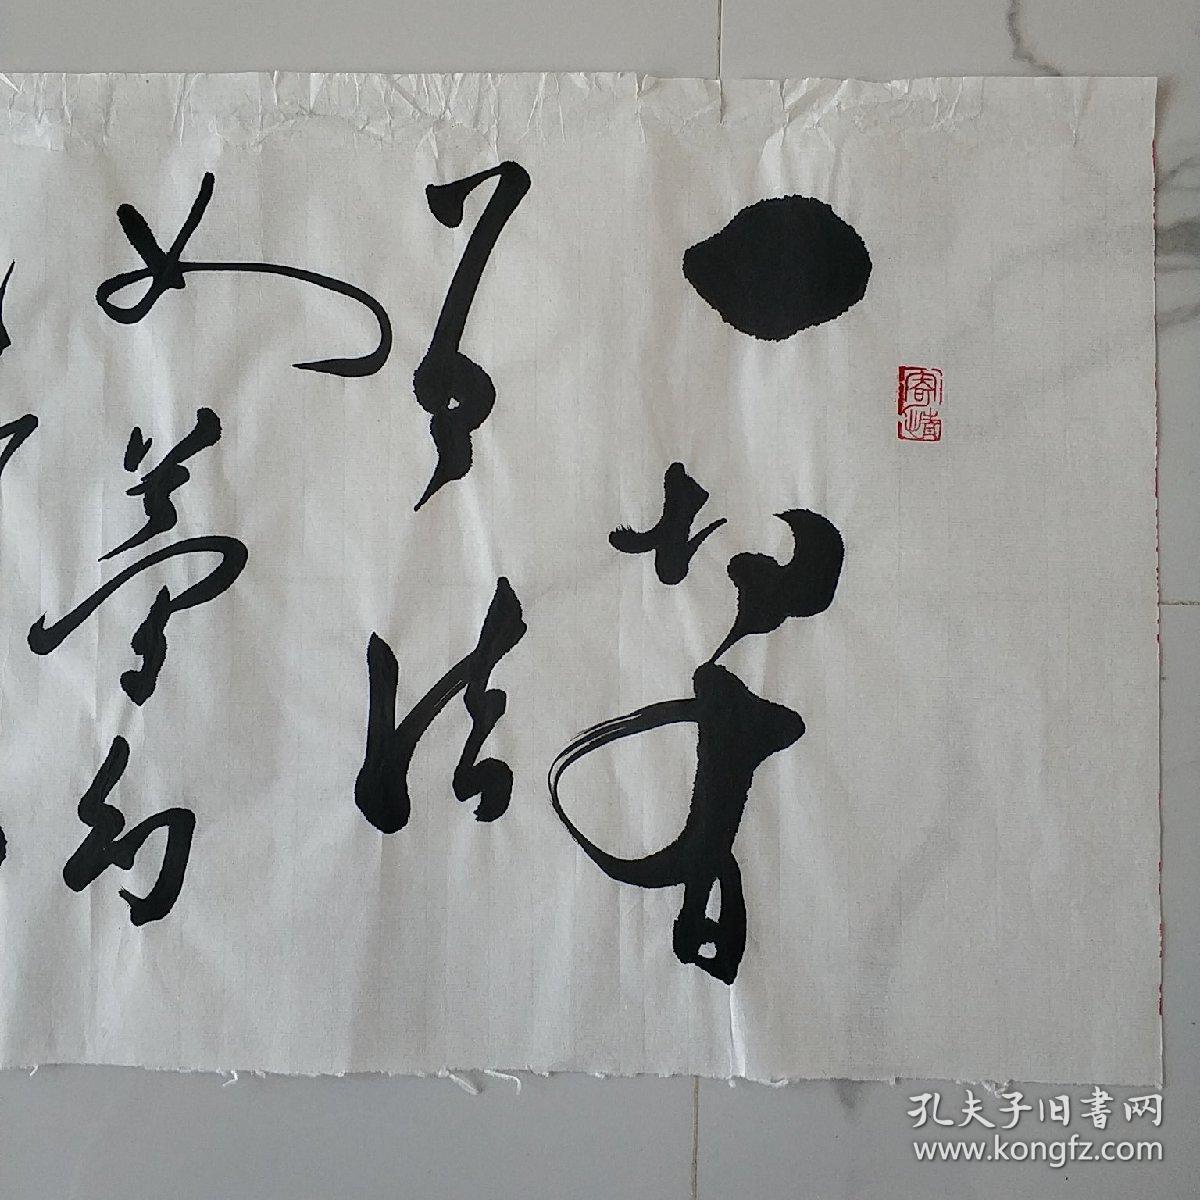 一切有
為法
如夢幻
孔夫子旧書网
www.kongfz.com